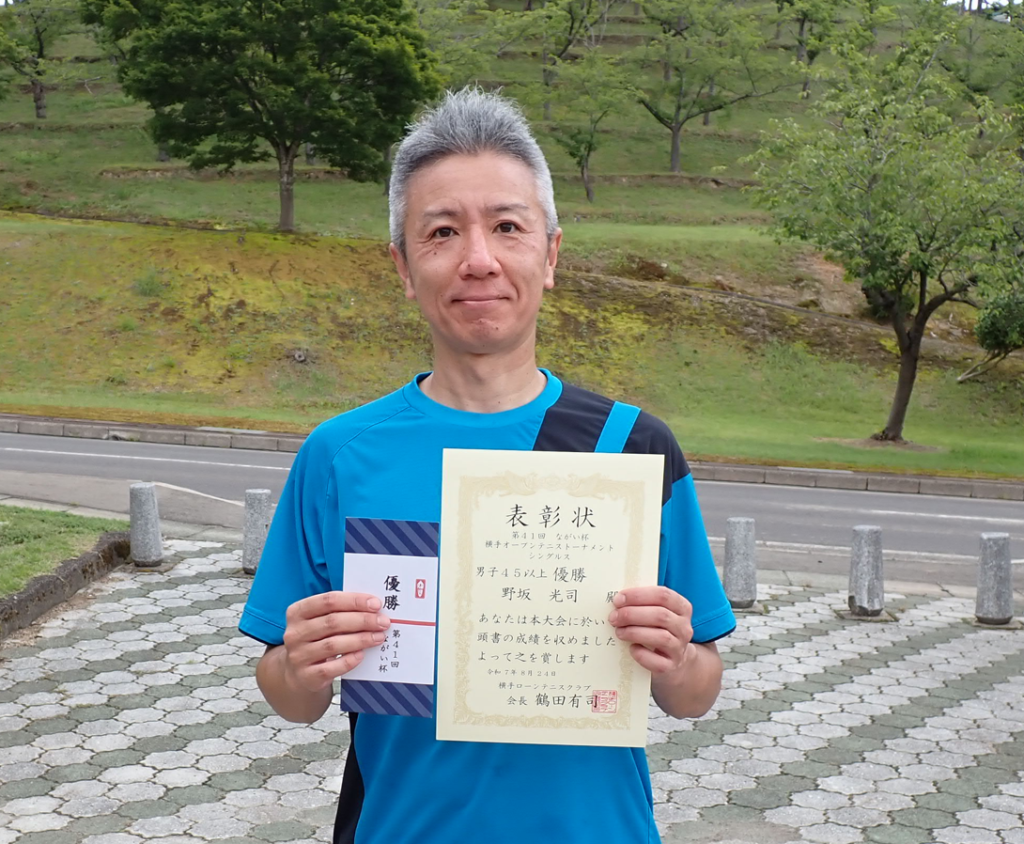 優勝
第41回
ながい杯
表彰状
第41回 ながい杯
横手オープンテニストーナメント
シングルス
男子45以上 優勝
野坂 光司 殿
あなたは本大会に於い
頭書の成績を収めました
よって之を賞します
令和7年8月24日
横手ローンテニスクラブ
会長 鶴田有司